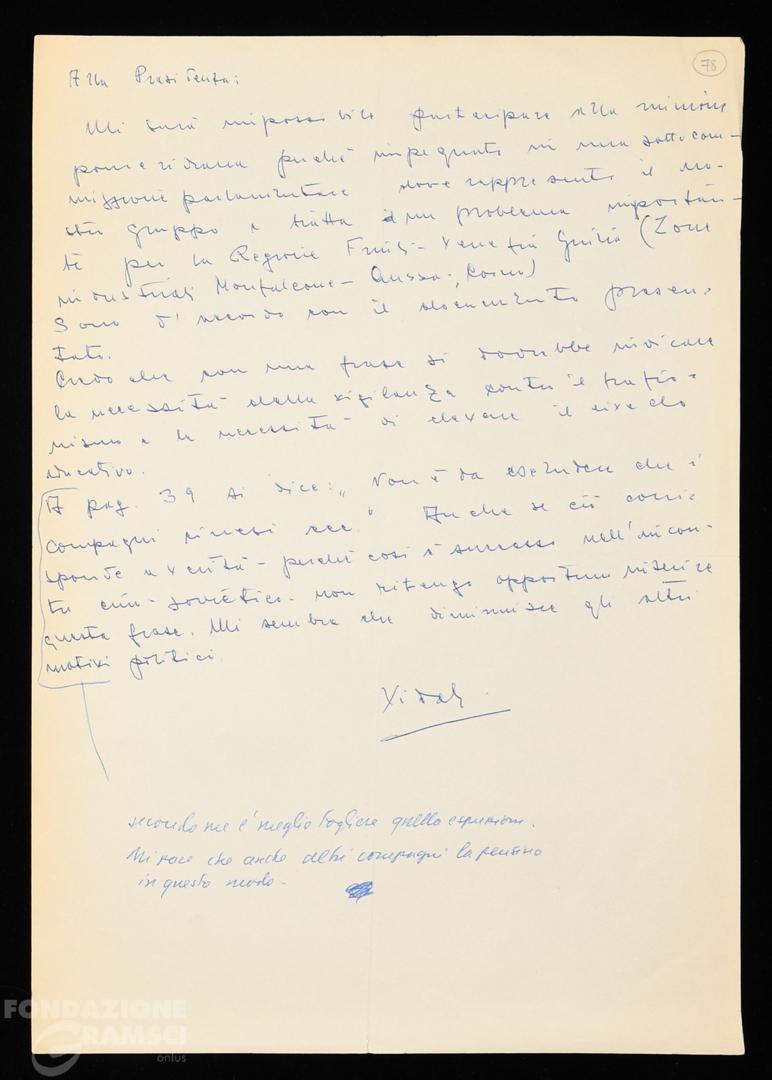 78
Alla Presidenza:
Mi sarà impossibile partecipare alla riunione
pomeridiana perché impegnato in una sottocom-
missione parlamentare dove rappresento il no-
stro gruppo e tratta d'un problema importan-
te per la Regione Friuli-Venezia Giulia (Zone
industriali Monfalcone - Aussa-Corno)
Sono d'accordo con il documento presen-
tato.
Credo che con una frase si dovrebbe indicare
la necessità della vigilanza contro il frazio-
nismo e la necessità di elevare il livello
educativo.
A pag. 39 si dice: "Non è da escludere che i
compagni cinesi ecc." Anche se ciò corri-
sponde a verità - perché così è successo nell'incon-
tro cino-sovietico - non ritengo opportuno inserire
questa frase. Mi sembra che diminuisce gli altri
motivi politici.
Vidali
secondo me è meglio togliere quella espressione.
Mi pare che anche altri compagni la pensino
in questo modo -
FONDAZIONE
GRAMSCI
onlus